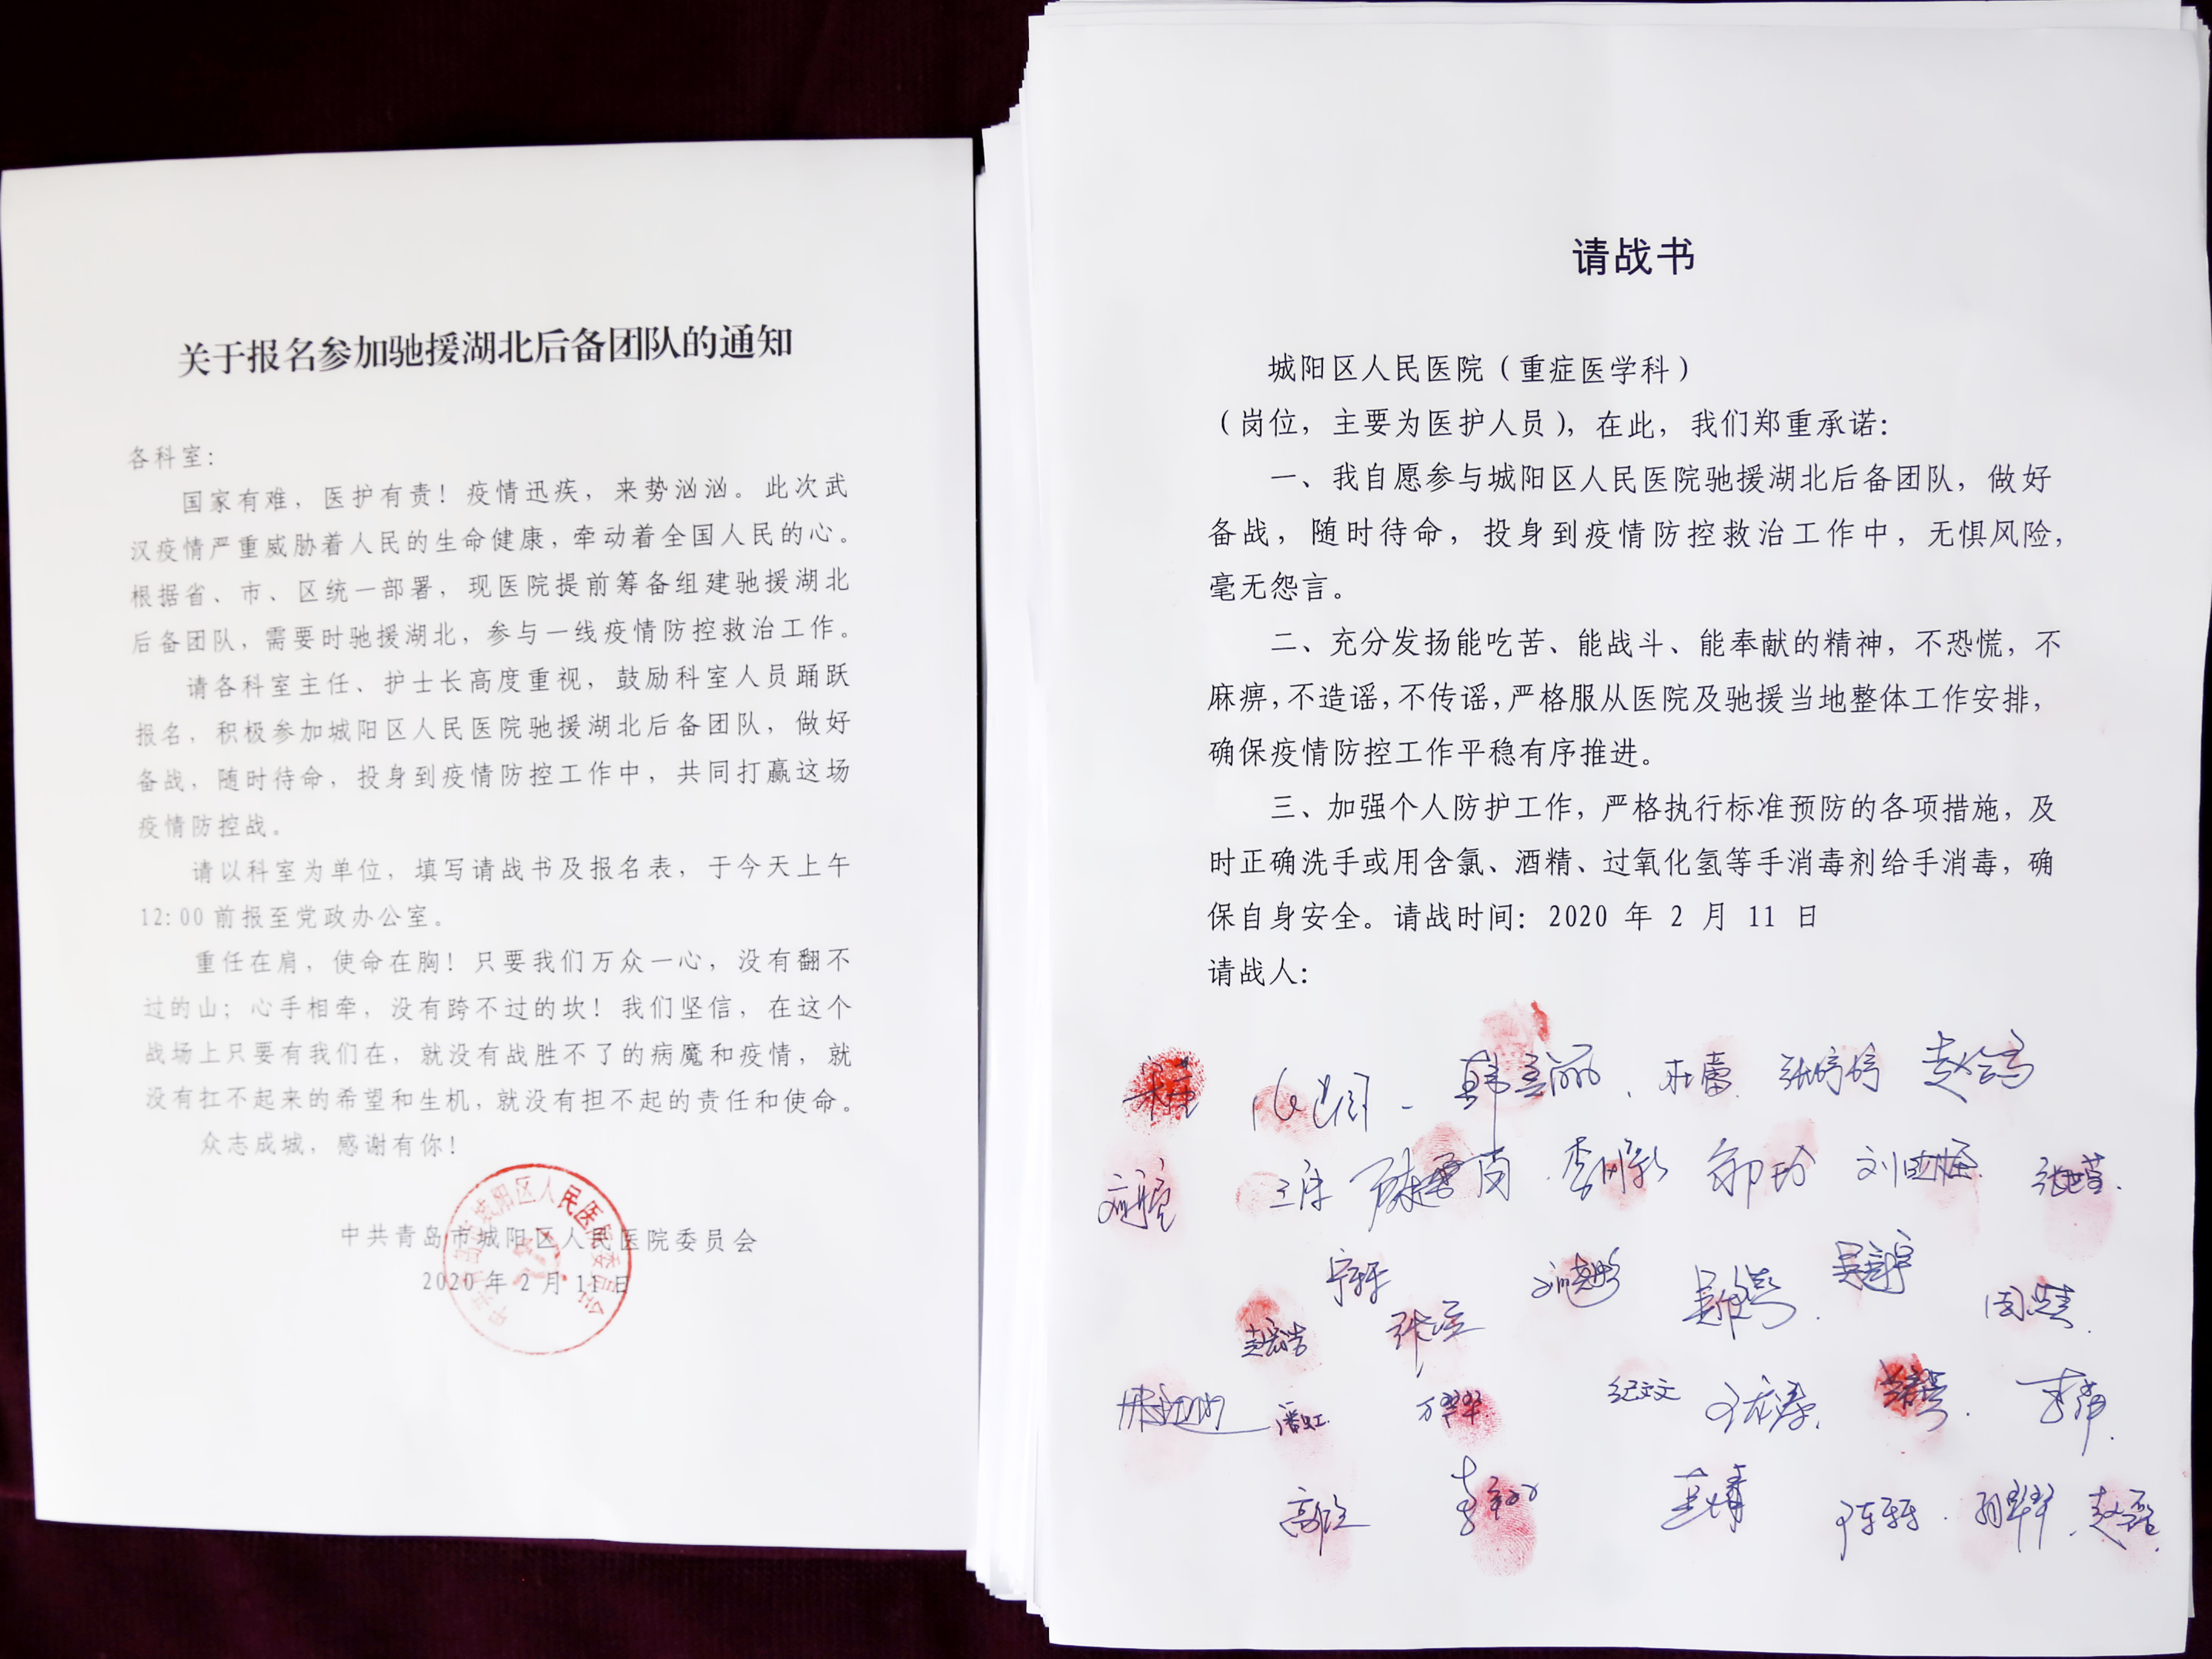 关于报名参加驰援湖北后备团队的通知
各科室：
国家有难，医护有责！疫情迅疾，来势汹汹。此次武
汉疫情严重威胁着人民的生命健康，牵动着全国人民的心。
根据省、市、区统一部署，现医院提前筹备组建驰援湖北
后备团队，需要时驰援湖北，参与一线疫情防控救治工作。
请各科室主任、护士长高度重视，鼓励科室人员踊跃
报名，积极参加城阳区人民医院驰援湖北后备团队，做好
备战，随时待命，投身到疫情防控工作中，共同打赢这场
疫情防控战。
请以科室为单位，填写请战书及报名表，于今天上午
12:00前报至党政办公室。
重任在肩，使命在胸！只要我们万众一心，没有翻不
过的山；心手相牵，没有跨不过的坎！我们坚信，在这个
战场上只要有我们在，就没有战胜不了的病魔和疫情，就
没有扛不起来的希望和生机，就没有担不起的责任和使命。
众志成城，感谢有你！
中共青岛市城阳区人民医院委员会
2020年2月11日
请战书
城阳区人民医院（重症医学科）
（岗位，主要为医护人员），在此，我们郑重承诺：
一、我自愿参与城阳区人民医院驰援湖北后备团队，做好
备战，随时待命，投身到疫情防控救治工作中，无惧风险，
毫无怨言。
二、充分发扬能吃苦、能战斗、能奉献的精神，不恐慌，不
麻痹，不造谣，不传谣，严格服从医院及驰援当地整体工作安排，
确保疫情防控工作平稳有序推进。
三、加强个人防护工作，严格执行标准预防的各项措施，及
时正确洗手或用含氯、酒精、过氧化氢等手消毒剂给手消毒，确
保自身安全。请战时间：2020 年 2 月 11 日
请战人：
杜蕾 张婷婷
纪文文
潘虹